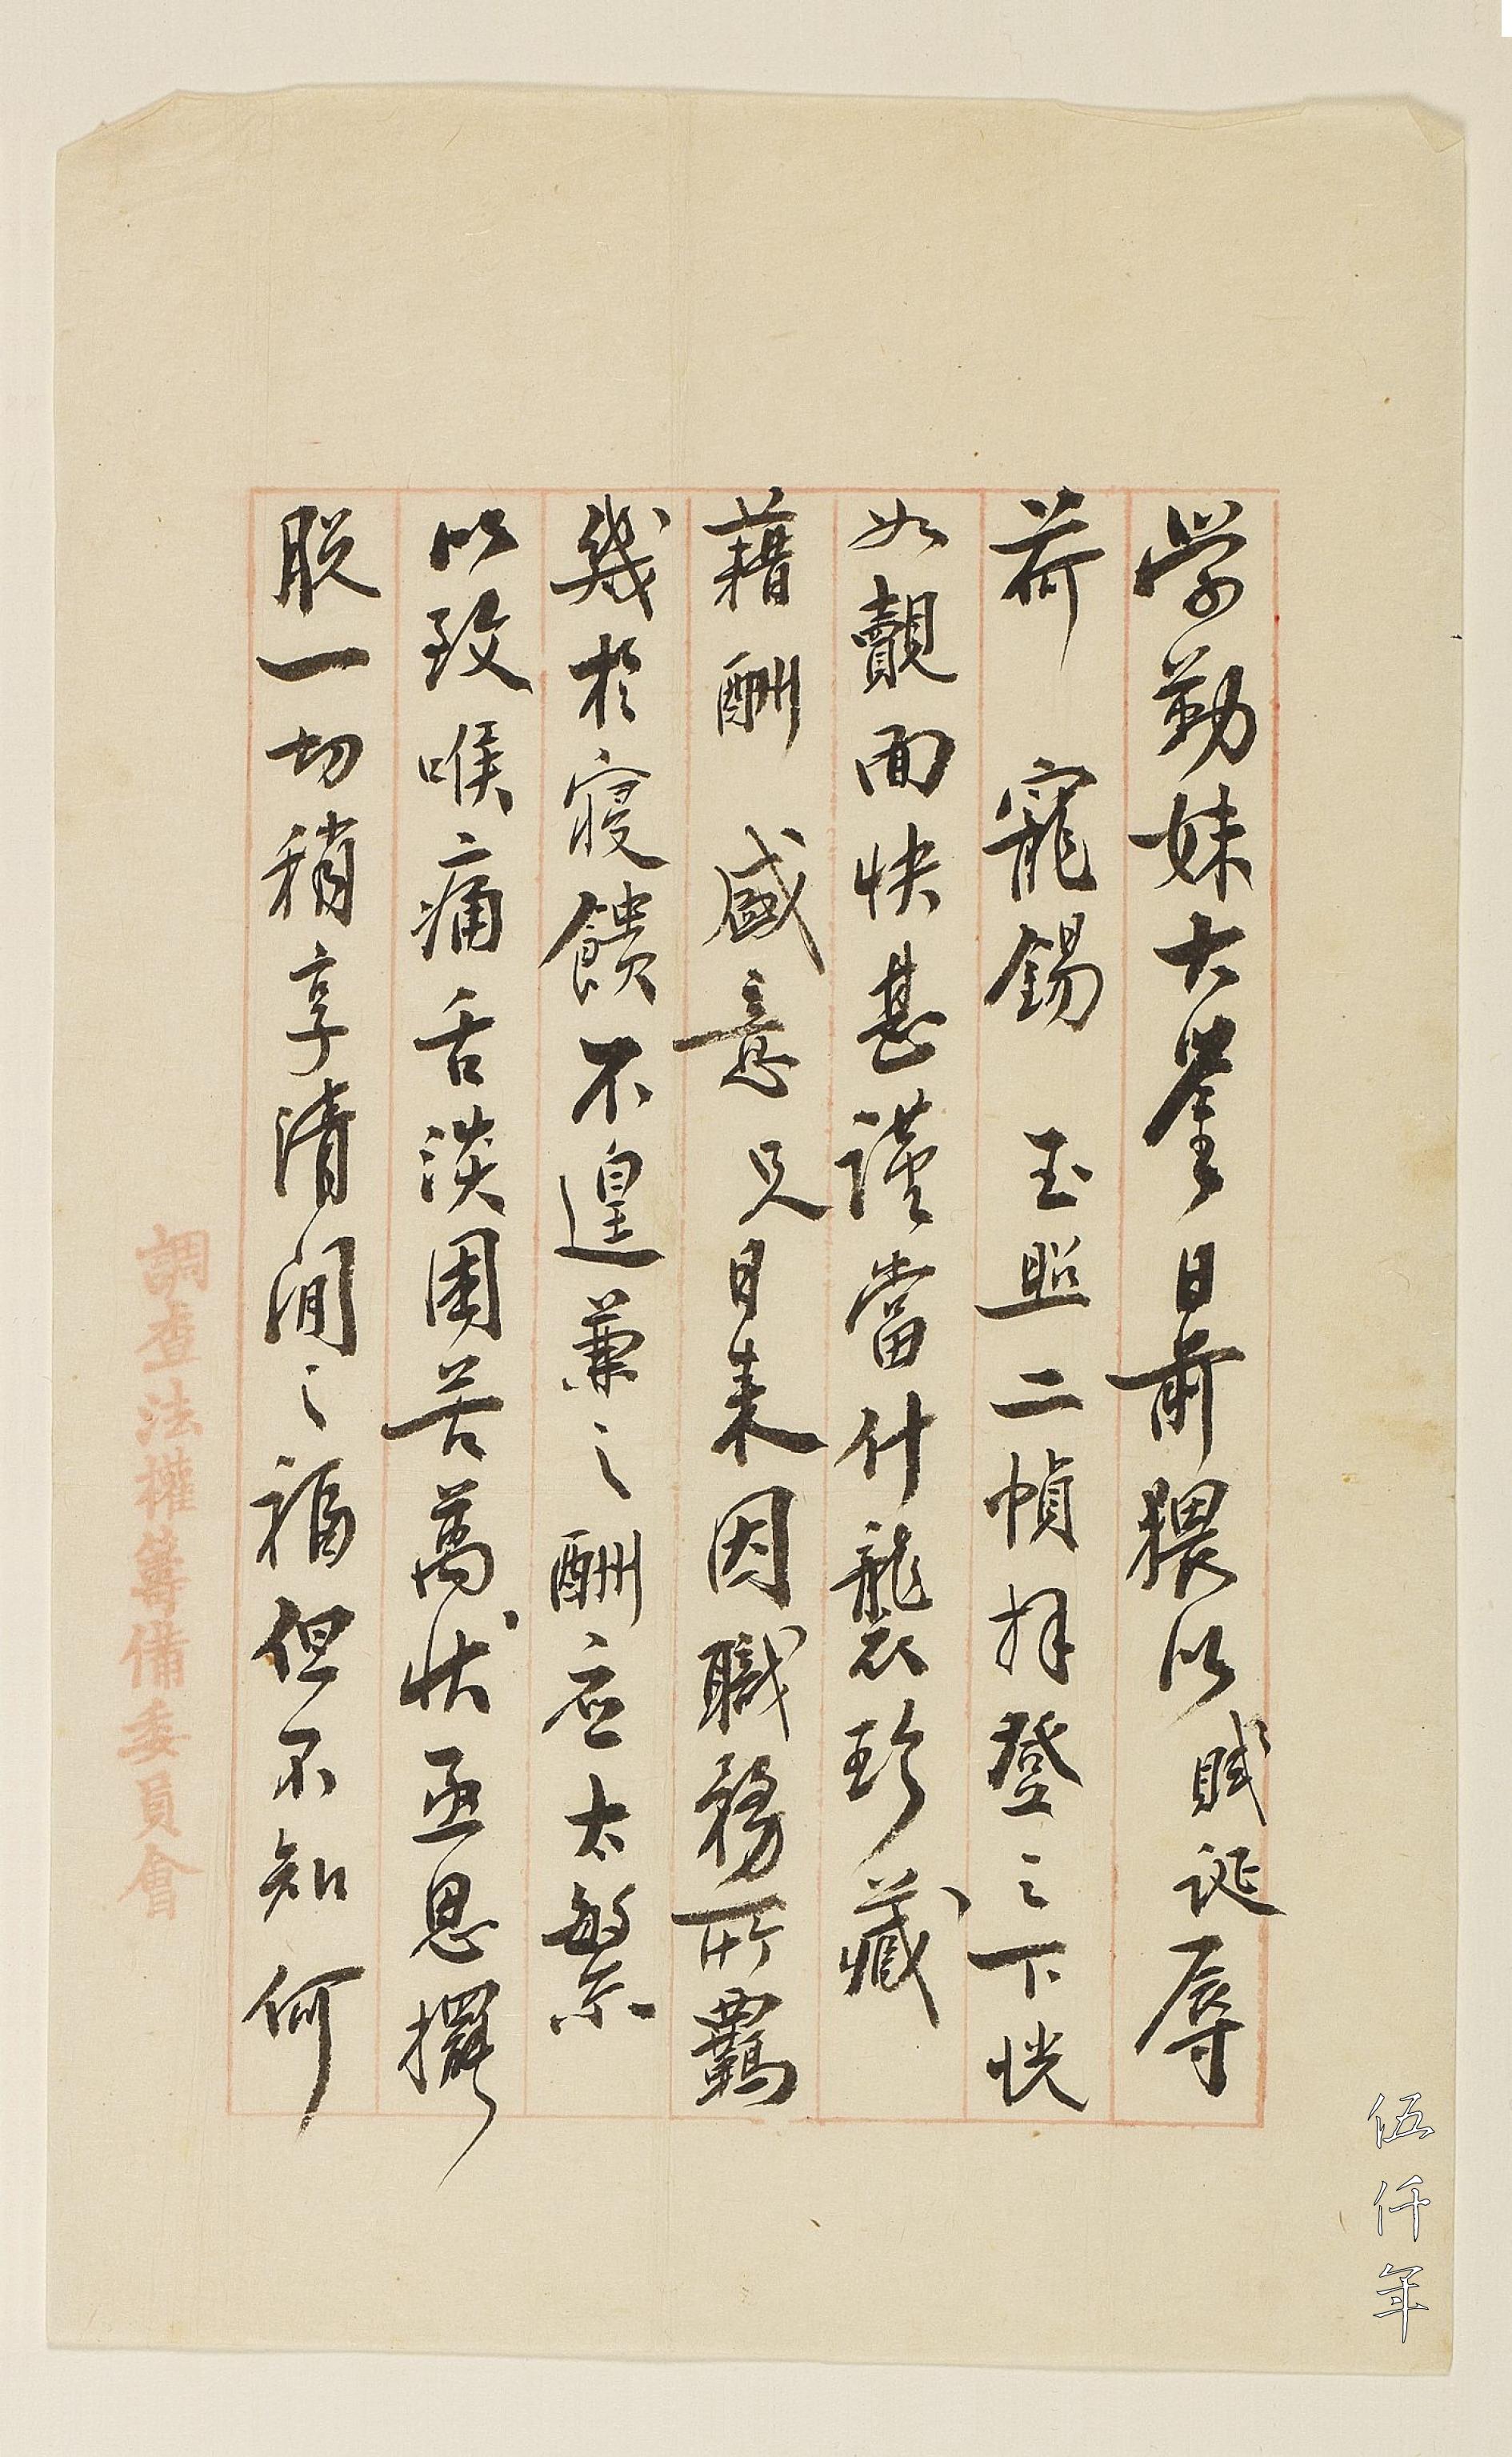 学勤妹大鉴日前猥以贱诞辱
荷 寵錫 玉照二幀拜登之下恍
如覿面快甚謹當什襲珍藏
藉酬 盛意只日来因職務所羈
幾於寝饋不遑兼之酬应太繁
以致喉痛舌淡困苦萬状亟思擺
脱一切稍享清闲之福但不知何
調查法權籌備委員會
伍仟年